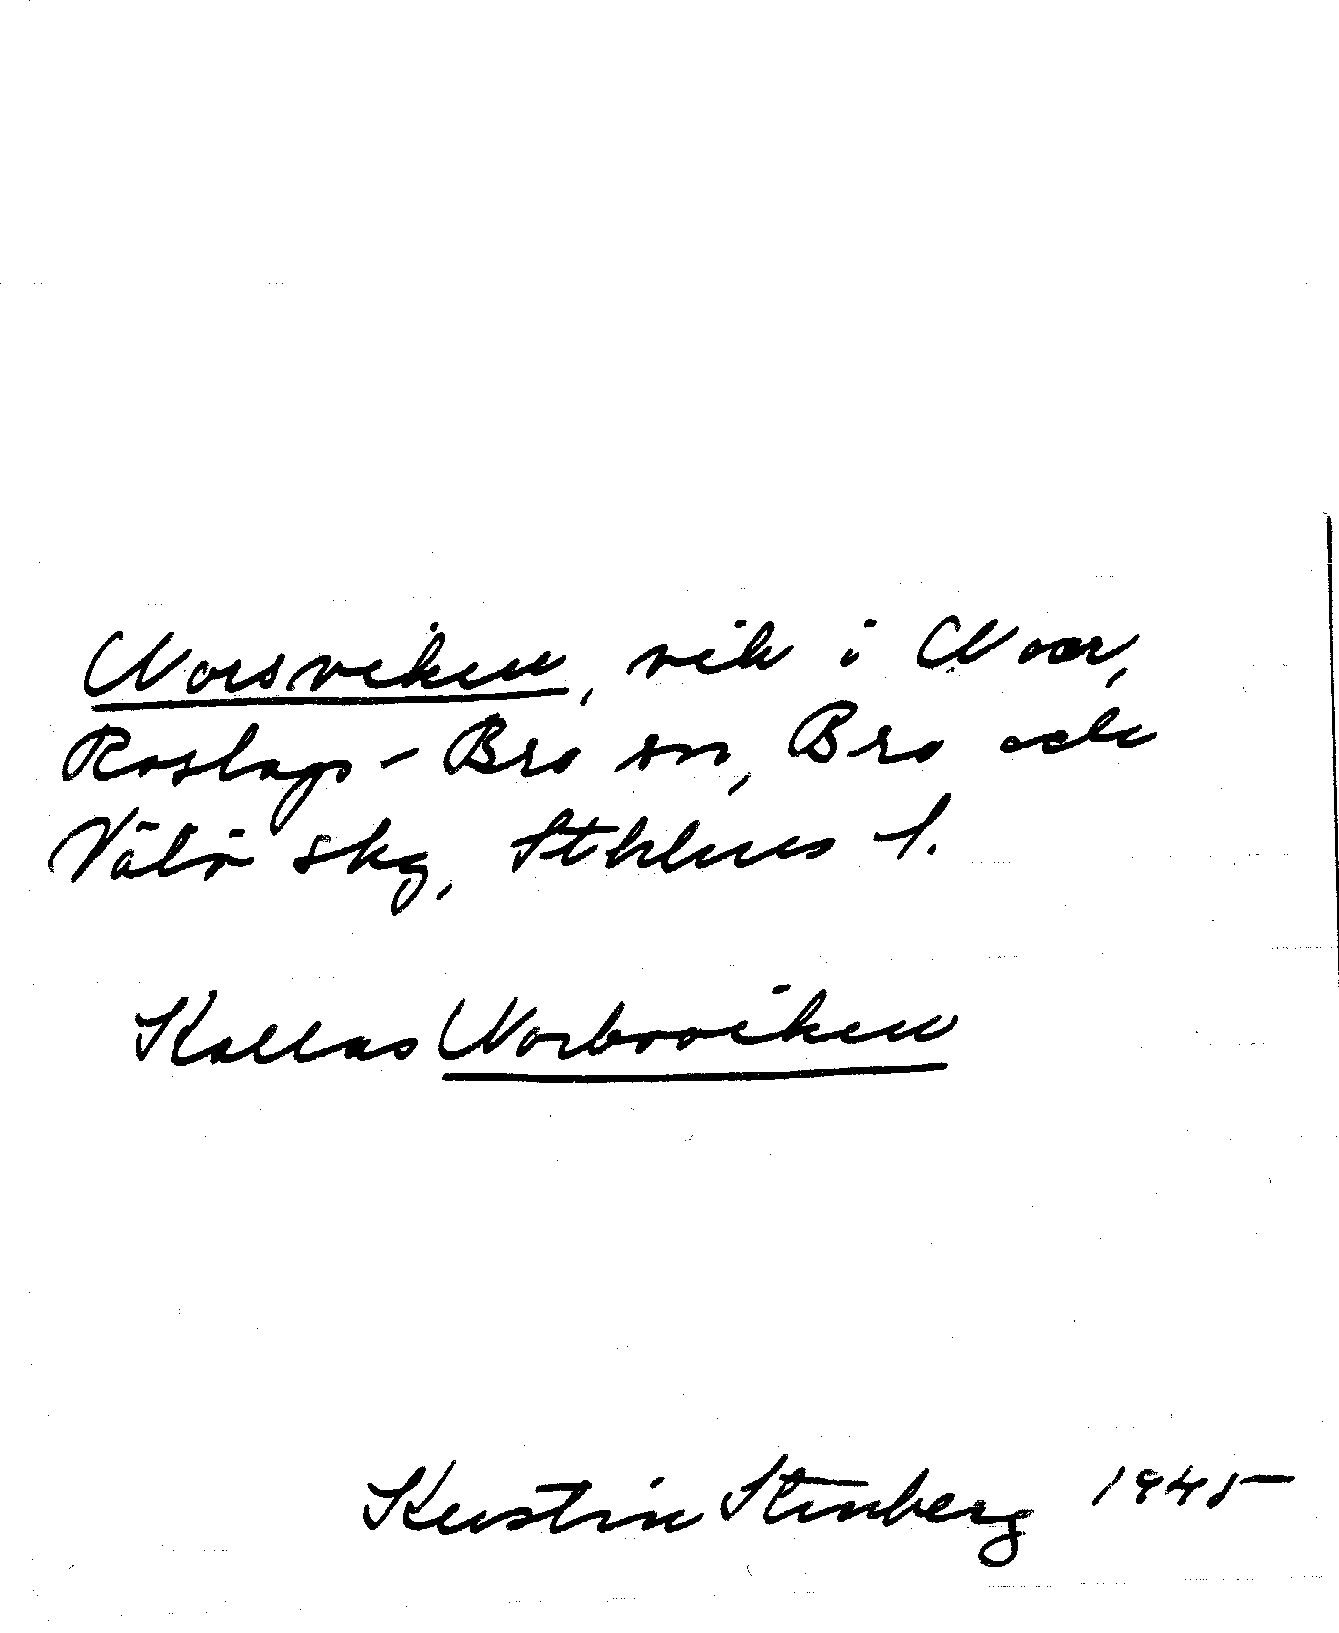 Norsviken, vik i Noor,
Roslags-Bro sn, Bro och
Vätö skg, Sthlms l.
Kallas Norbroviken
Kerstin Stenberg 1945